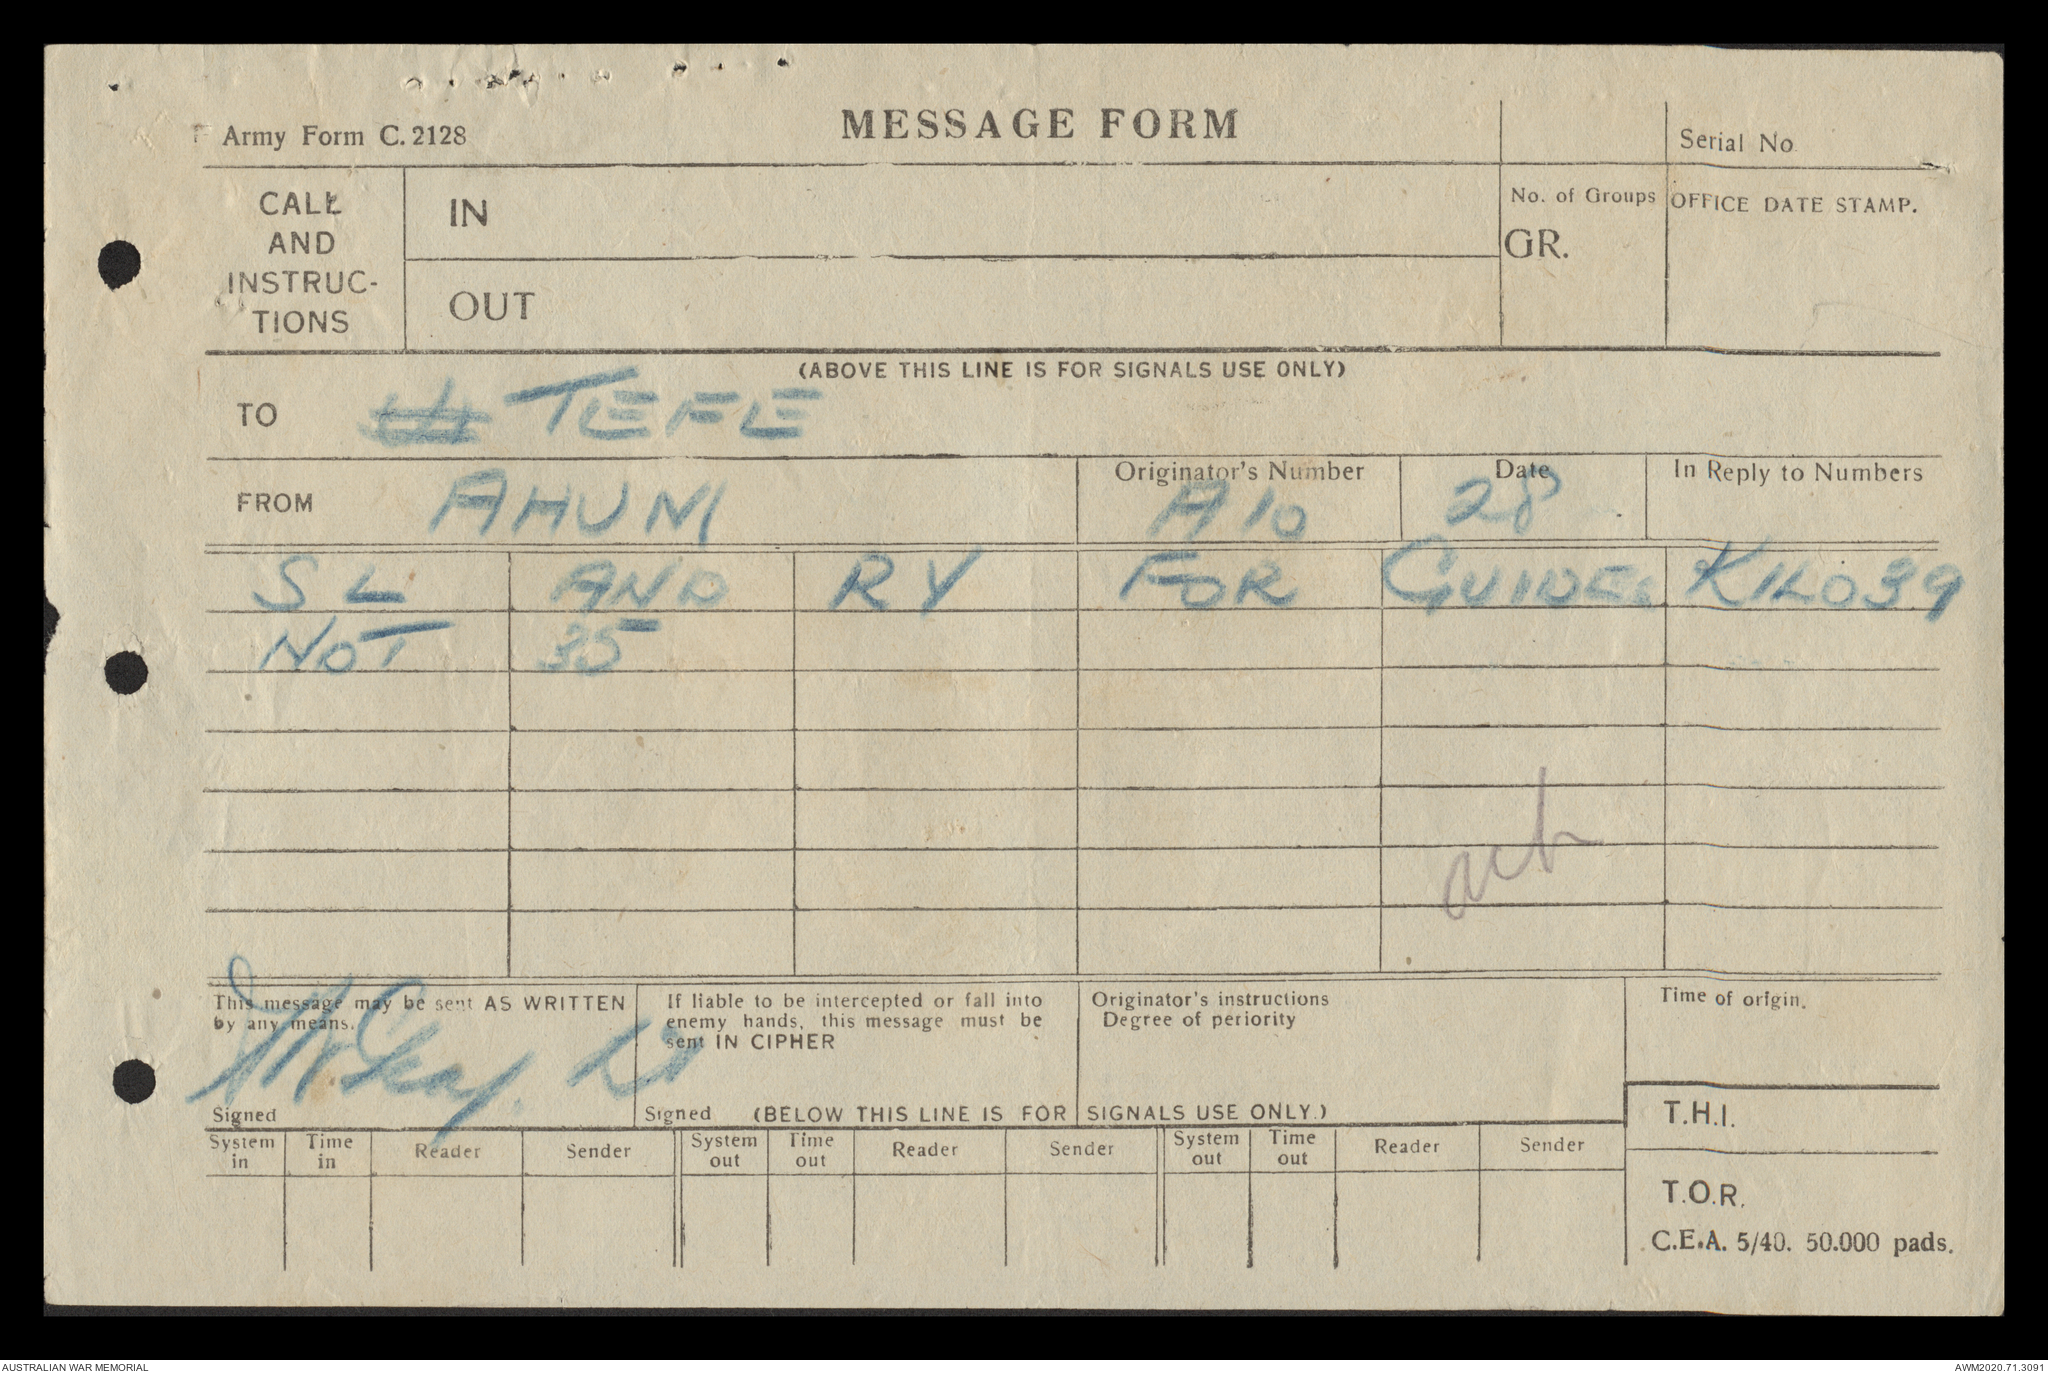 Army Form C. 2128
MESSAGE FORM
Serial No
CALL
AND
INSTRUC-
TIONS
IN
OUT
No. of Groups
GR.
OFFICE DATE STAMP.
(ABOVE THIS LINE IS FOR SIGNALS USE ONLY)
TO TEFE
FROM AHUNI
Originator's Number
A10
Date
28
In Reply to Numbers
SL AND RY FOR GUIDES KILO 39
NOT 35
This message may be sent AS WRITTEN
by any means.
Signed
If liable to be intercepted or fall into
enemy hands, this message must be
sent IN CIPHER
Signed
Originator's instructions
Degree of periority
Time of origin.
(BELOW THIS LINE IS FOR SIGNALS USE ONLY.)
T.H.I.
System in
Time in
Reader
Sender
System out
Time out
Reader
Sender
System out
Time out
Reader
Sender
T.O.R.
C.E.A. 5/40. 50.000 pads.
AUSTRALIAN WAR MEMORIAL
AWM2020.71.3091